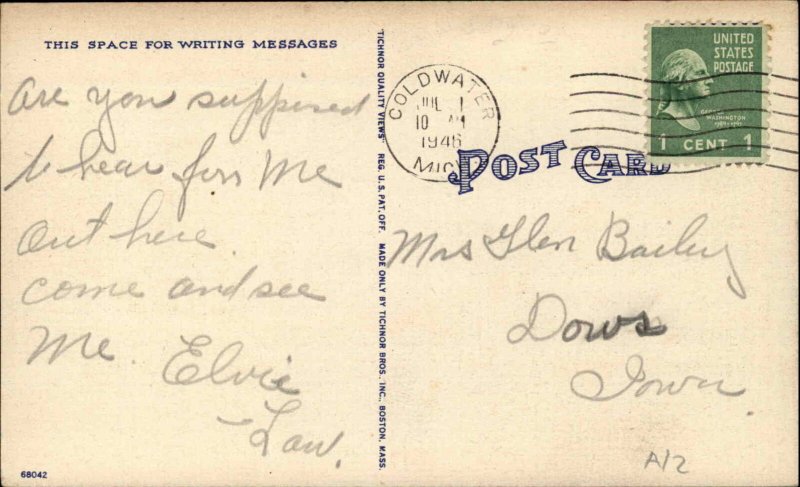 THIS SPACE FOR WRITING MESSAGES
Are you suppised
to hear from Me
Out here.
come and see
Me. Elvie
Law.
68042
"TICHNOR QUALITY VIEWS" REG. U.S. PAT. OFF. MADE ONLY BY TICHNOR BROS., INC., BOSTON, MASS.
COLDWATER
JUL 1
10 AM
1946
MICH
UNITED
STATES
POSTAGE
GEORGE
WASHINGTON
1 CENT 1
POST CARD
Mrs Glen Bailey
Dows
Iowa.
A12